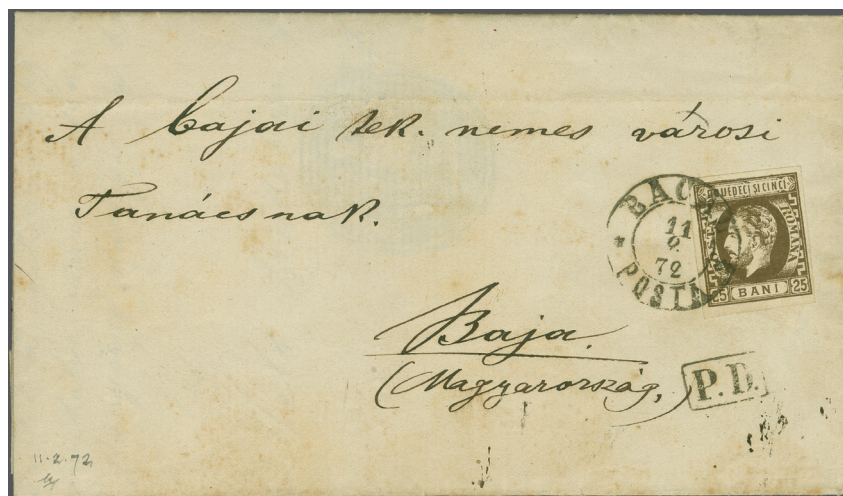 A bajai tek. nemes városi
Tanácsnak.
BACĂU
11
2
72
POSTA
DOUĕDECI SI CINCI
POSTA
ROMANA
25 BANI 25
Baja.
(Magyarország,)
P.D.
11.2.72